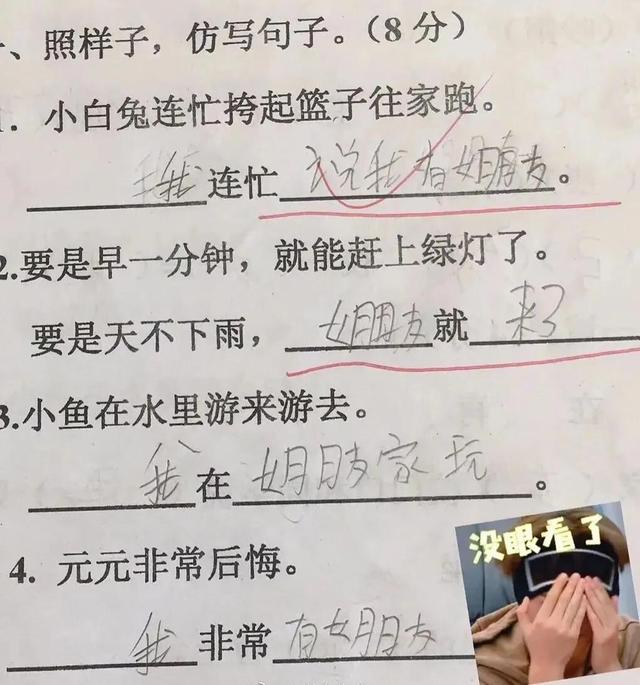 、照样子，仿写句子。（8分）
1. 小白兔连忙挎起篮子往家跑。
我连忙说我有女朋友。
2.要是早一分钟，就能赶上绿灯了。
要是天不下雨，女朋友就来了
3.小鱼在水里游来游去。
我在女朋友家玩。
4. 元元非常后悔。
我非常有女朋友
没眼看了